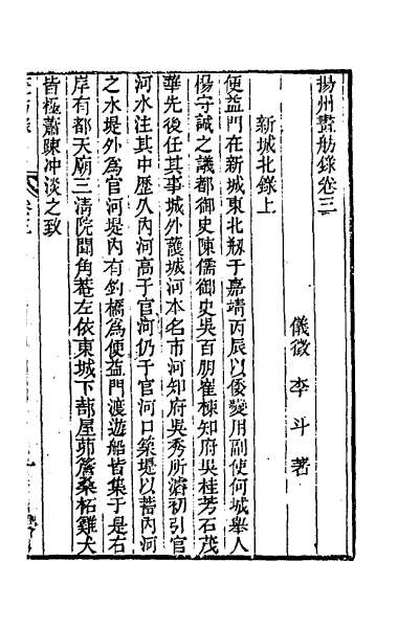 揚州畫舫錄卷三
儀徵 李斗 著
新城北錄上
便益門在新城東北剏于嘉靖丙辰以倭變用副使何城舉人
楊守誠之議都御史陳儒御史吳百朋崔棟知府吳桂芳石茂
華先後任其事城外護城河本名市河知府吳秀所濬初引官
河水注其中歷久內河高于官河仍于官河口築堤以蓄內河
之水堤外為官河堤內有釣橋為便益門渡遊船皆集于是右
岸有都天廟三清院聞角菴左依東城下蔀屋茆簷桑柘雞犬
皆極蕭疎冲淡之致